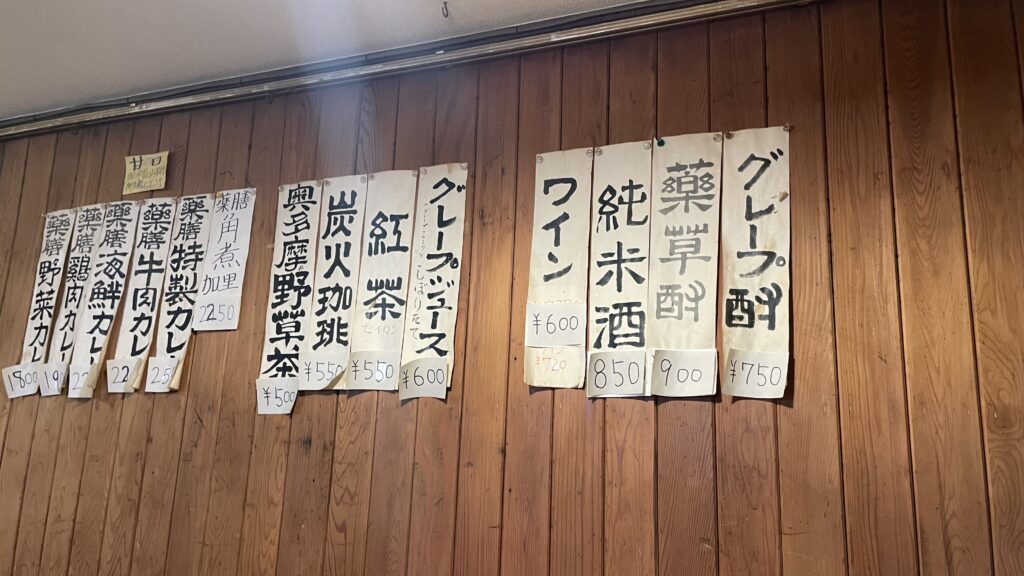 甘口
薬膳野菜カレ
1800
薬膳鶏肉カレ
19
薬膳海鮮カレ
薬膳牛肉カレ
22
薬膳特製カレ
25
薬膳角煮加里
2250
奥多摩野草茶
¥500
炭火珈琲
¥550
紅茶
セイロン
¥550
グレープジュース
しぼりたて
¥600
ワイン
¥600
¥720
純米酒
850
薬草酎
900
グレープ酎
¥750